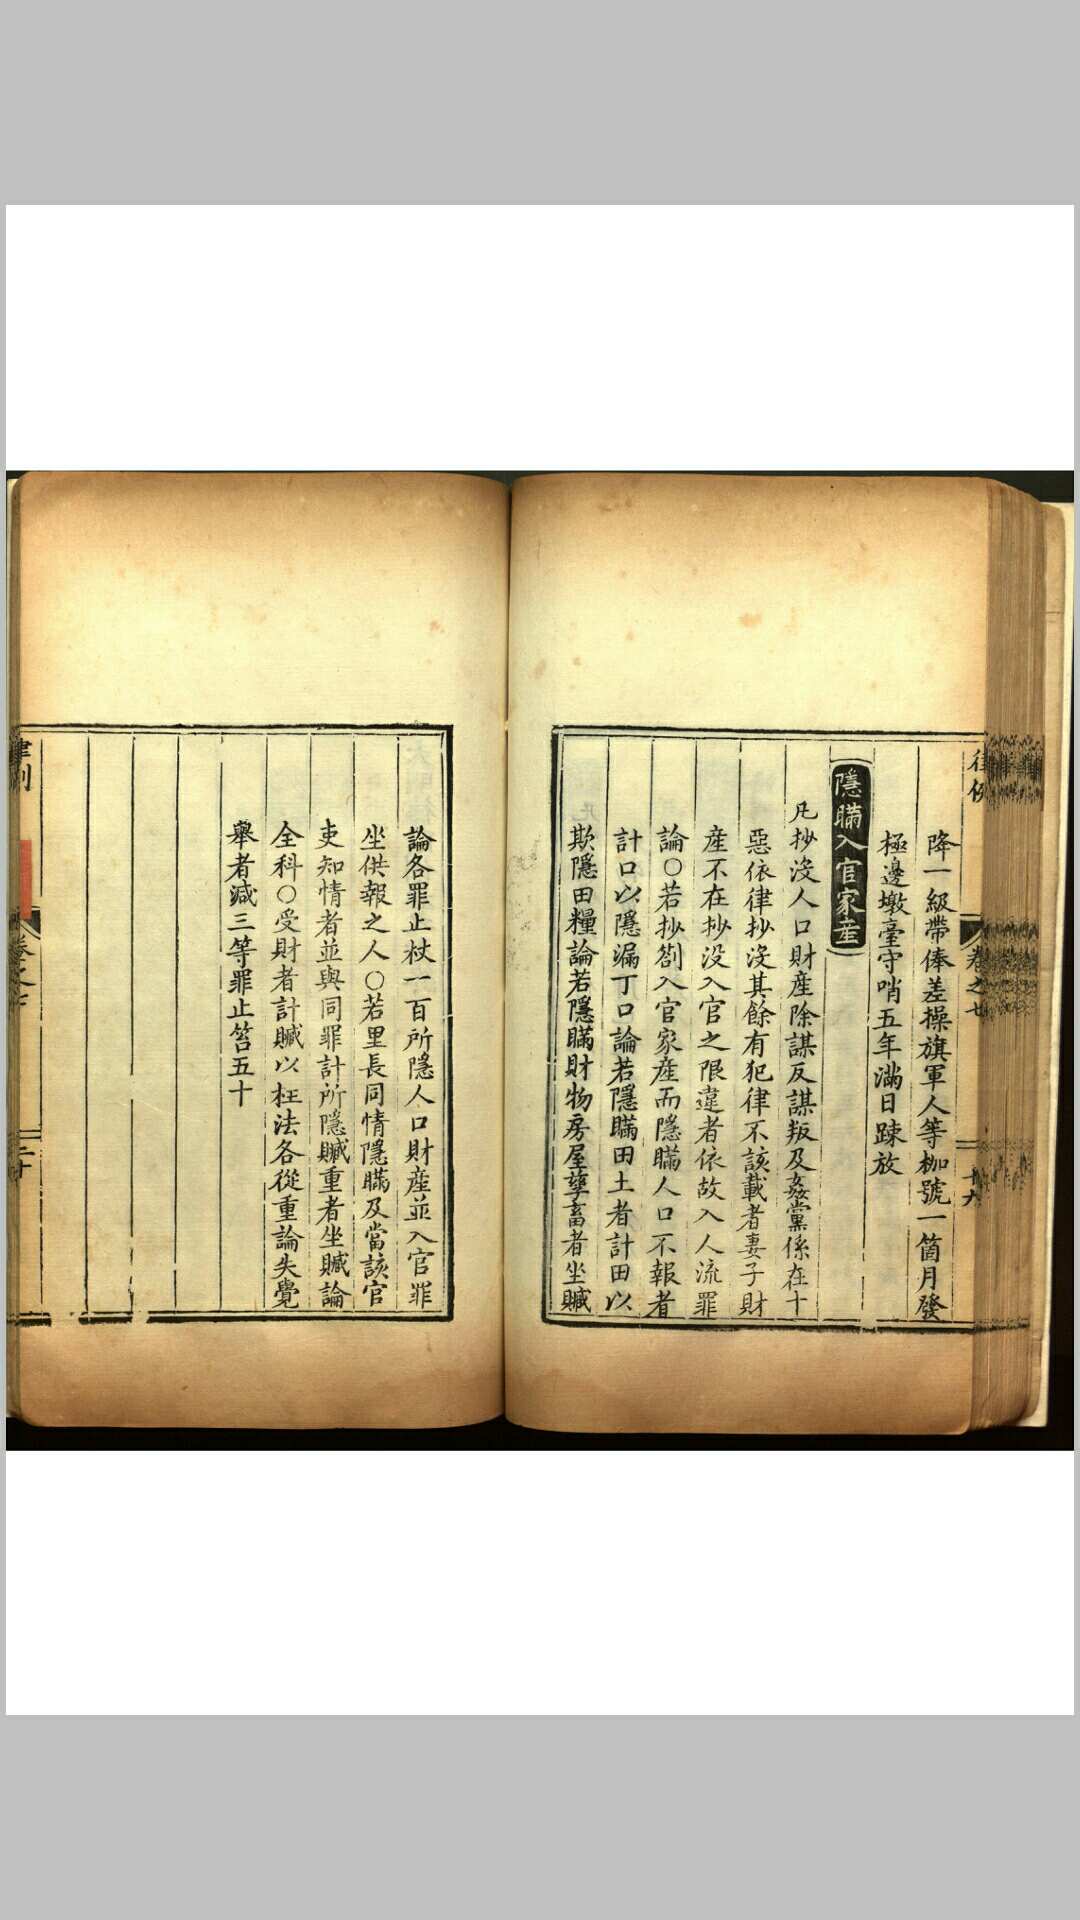 律例
卷之七
十九
降一級帶俸差操旗軍人等枷號一箇月發
極邊墩臺守哨五年滿日踈放
隱瞞入官家產
凡抄沒人口財產除謀反謀叛及姦黨係在十
惡依律抄沒其餘有犯律不該載者妻子財
產不在抄没入官之限違者依故入人流罪
論○若抄劄入官家產而隱瞞人口不報者
計口以隱漏丁口論若隱瞞田土者計田以
欺隱田糧論若隱瞞財物房屋孳畜者坐贓
論各罪止杖一百所隱人口財產並入官罪
坐供報之人○若里長同情隱瞞及當該官
吏知情者並與同罪計所隱贓重者坐贓論
全科○受財者計贓以枉法各從重論失覺
舉者減三等罪止笞五十
律例
卷之七
二十